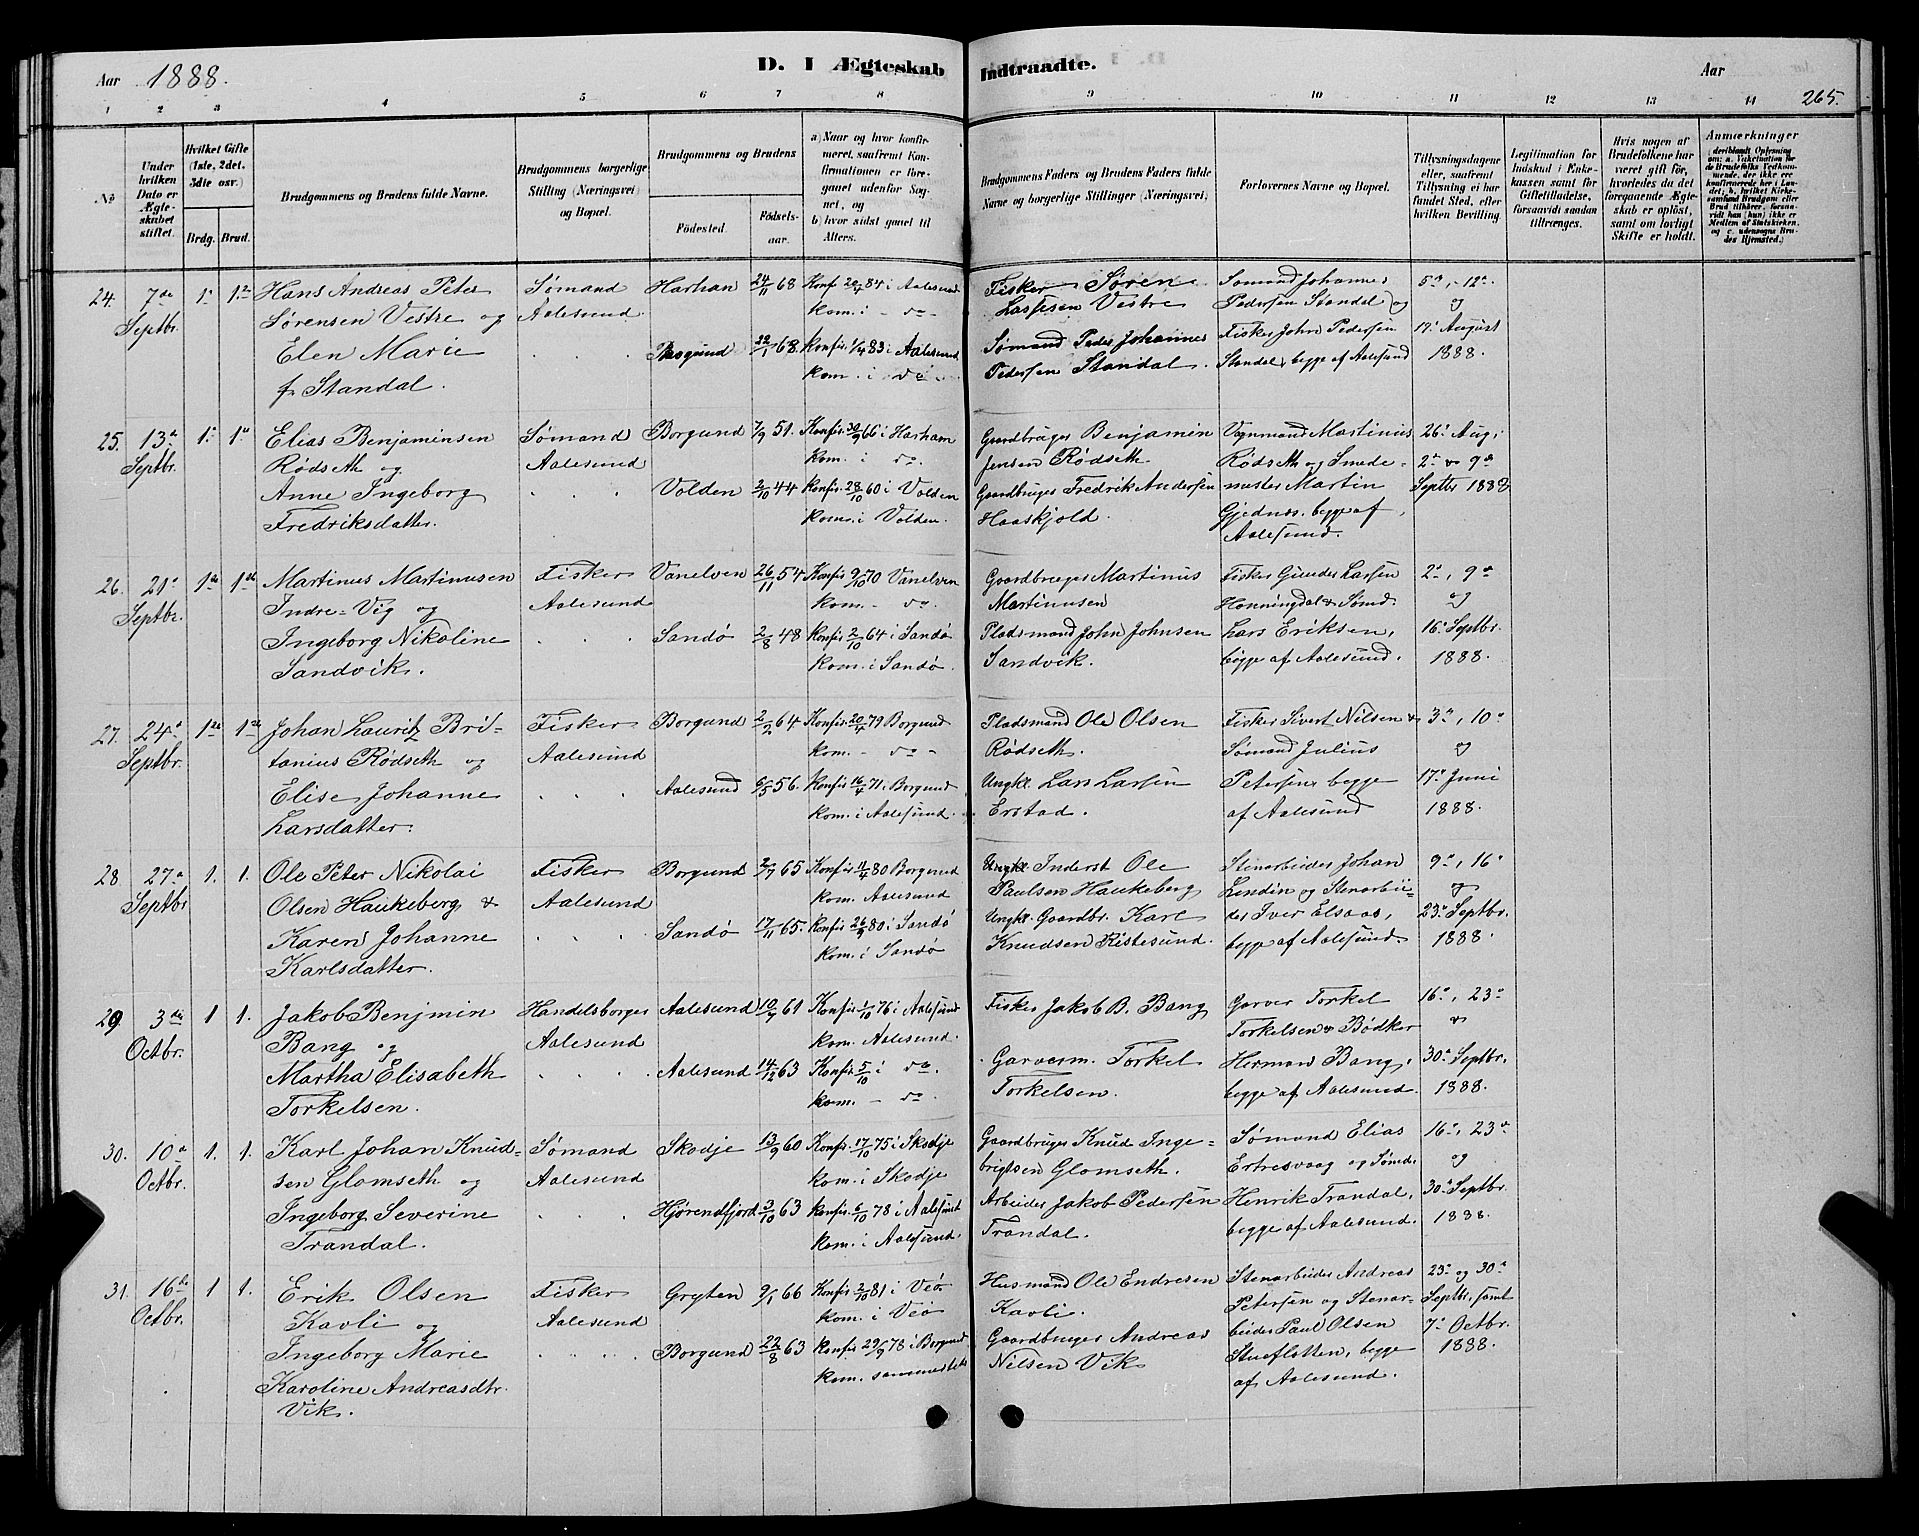 Aar 1888. D. I Ægteskab Indtraadte. Aar 265.
1 2 3 4 5 6 7 8 9 10 11 12 13 14
No
Under hvilken Dato er Ægteskabet stiftet.
Hvilket Gifte (1ste, 2det, 3die osv.)
Brdg. Brud.
Brudgommens og Brudens fulde Navne.
Brudgommens borgerlige Stilling (Næringsvei) og Bopæl.
Brudgommens og Brudens
Fødested. Fødselsaar.
a) Naar og hvor konfirmeret, saafremt Konfirmationen er foregaaet udenfor Sognet, og
b) hvor sidst gaaet til Alters.
Brudgommens Faders og Brudens Faders fulde Navne og borgerlige Stillinger (Næringsvei)
Forlovernes Navne og Bopæl.
Tillysningsdagene eller, saafremt Tillysning ei har fundet Sted, efter hvilken Bevilling.
Legitimation for Indskud i Enkekassen samt for Giftetilladelse, forsaavidt saadan tiltrænges.
Hvis nogen af Brudefolkene har været gift før, hvorledes da det foregaaende Ægteskab er opløst, samt om lovligt Skifte er holdt.
Anmærkninger
24. 7de Septbr. 1. 1ste
Hans Andreas Peter
Sørensen Vestre og
Elen Marie
f. Standal.
Sømand
Aalesund.
Harhan 24/11 68
Borgund 22/1 68.
Konf. 20/4 84 i Aalesund
kom. i - do -
Konfir. 1/4 83 i Aalesund
kom. i do
Fisker Søren
Lassesen Vestre
Sømand Peder Johannes
Pedersen Standal.
Sømand Johannes
Pedersen Standal og
Fisker John Pedersen
Standal, begge af Aalesund
5te, 12te
og
19. August
1888.
25. 13de Septbr. 1. 1ste
Elias Benjaminsen
Rødseth og
Anne Ingeborg
Fredriksdatter.
Sømand
Aalesund
Borgund 7/9 51.
Volden 2/10 44
Konfir. 30/9 66 i Harham
kom. i do.
Konfir. 28/10 60 i Volden
kom. i Volden.
Gaardbruger Benjamin
Jensen Rødseth.
Gaardbruger Fredrik Andersen
Haaskjold.
Vognmand Martinus
Rødseth og Smede-
mester Martin
Gjednes, begge af
Aalesund.
26. Aug.
2de & 9de
Septbr 1888
26. 21de Septbr. 1ste 1ste
Martinus Martinusen
Indre-Vig og
Ingeborg Nikoline
Sandvik.
Fisker
Aalesund
Vanelven 26/11 54
Sandø 2/8 48
Konfir 9/10 70 Vanelven
kom. - do.
Konfir. 2/10 64 i Sandø
kom. i Sandø.
Gaardbruger Martinus
Martinusen
Pladsmand John Johnsen
Sandvik.
Fisker Gunder Larsen
Honningdal & Sømd.
Lars Eriksen,
begge af Aalesund.
2de, 9de
og
16de Septbr.
1888.
27. 24de Septbr. 1ste 1ste
Johan Lauritz Bri-
tanius Rødseth og
Elise Johanne
Larsdatter.
Fisker
Aalesund
Borgund 2/2 64
Aalesund 6/5 56.
Konfir 20/4 79 Borgund
kom. - do -
Konfir. 16/4 71 i Borgund
kom. i Aalesund.
Pladsmand Ole Olsen
Rødseth.
Ungkl. Lars Larsen
Erstad.
Fisker Sivert Nilsen &
Sømand Julius
Petersen begge
af Aalesund
3de, 10de
og
17de Juni
1888.
28 27de Septbr 1. 1.
Ole Peter Nikolai
Olsen Haukeberg &
Karen Johanne
Karlsdatter.
Fisker
Aalesund
Borgund 2/7 65
Sandø 17/11 65.
Konfir 11/4 80 Borgund
kom. Aalesund
Konfir. 26/9 80 i Sandø
kom. i Sandø
Ungkl. Inderst Ole
Paulsen Haukeberg
Ungkl. Gaardbr. Karl
Knudsen Ristesund.
Stenarbeider Johan
Lindin og Stenarbei-
der Iver Elsaas,
begge af Aalesund.
9de, 16de
og
23de Septbr.
1888.
29. 3die Octbr. 1 1.
Jakob Benjmin
Bang og
Martha Elisabeth
Torkelsen.
Handelsborger
Aalesund
Aalesund 10/9 61
Aalesund 14/12 63
Konfir. 1/10 76 i Aalesund
kom. Aalesund.
Konfir. 5/10 i do.
kom. - do -
Fisker Jakob B. Bang
Garversm. Torkel
Torkelsen.
Garver Torkel
Torkelsen & Bødker
Herman Bang,
begge af Aalesund.
16de, 23de
&
30de Septbr.
1888.
30. 10de Octbr. 1. 1.
Karl Johan Knud-
sen Glomseth og
Ingeborg Severine
Trandal.
Sømand
Aalesund
Skodje 13/9 60
Hjørendfjord 3/10 63
Konfir. 17/10 75 i Skodje
kom. i Skodje
Konfir. 6/10 78 i Aalesund
kom. i Aalesund.
Gaardbruger Knud Inge-
brigtsen Glomseth.
Arbeider Jakob Pedersen
Trandal.
Sømand Elias
Ertresvaag og Sømd.
Henrik Trandal,
begge af Aalesund.
16de, 23de
og
30de Septbr.
1888.
31. 16de Octbr. 1 1.
Erik Olsen
Kavli og
Ingeborg Marie
Karoline Andreasdtr.
Vik.
Fisker
Aalesund
Gryten 9/1 66
Borgund 22/8 63
Konfir. 2/10 81 i Veø
kom. i Veø
Konfir. 29/9 78 i Borgund
kom. sammesteds
Husmand Ole Endresen
Kavli.
Gaardbruger Andreas
Nilsen Vik
Stenarbeider Andreas
Petersen og Stenar-
beider Paul Olsen
Stueflotten, begge
af Aalesund.
23de og 30de
Septbr. samt
7de Octbr.
1888.